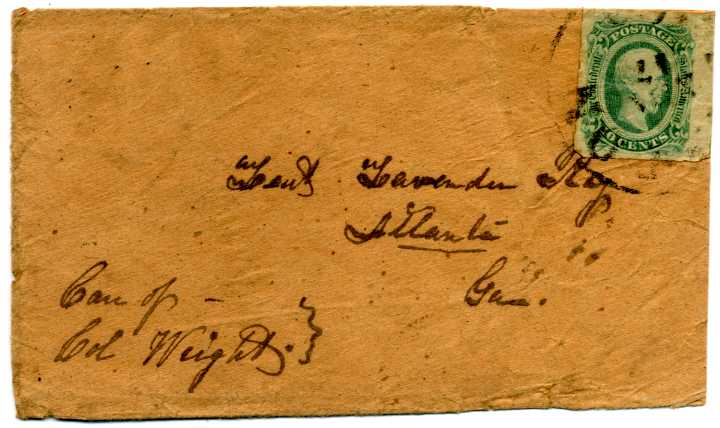 POSTAGE
Confederate States of America
CENTS
Lieut Lavender Ray
Atlanta
Ga.
Care of —
Col Wright.